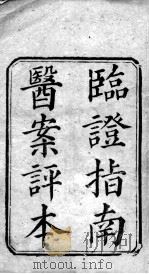 臨證指南
醫案評本
www.mtoou.info